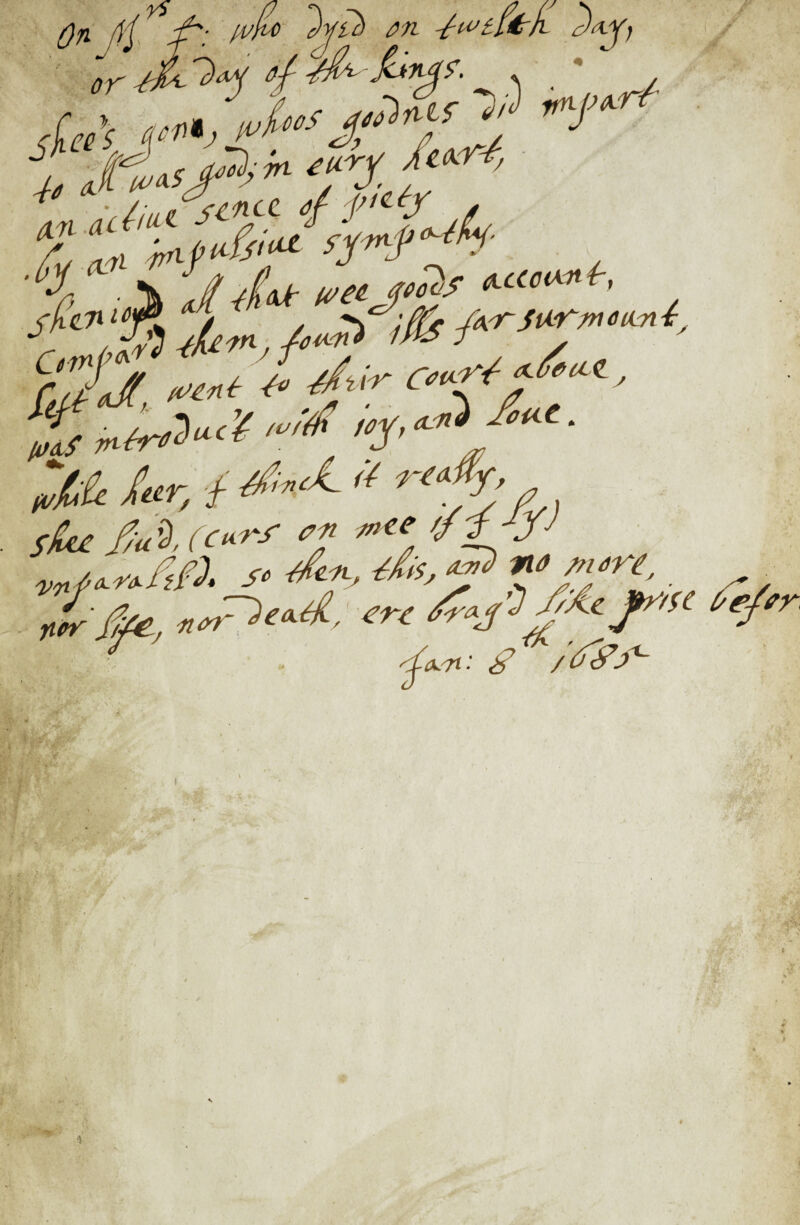 On Mrs F: who dyed on twelfth day,
or the day of the kings.
shee's gone, whoos goodnes did impart
to all was good, in eury heart,
an actiue sence of piety
by an impulsiue sympathy.
shen ioyd all that wee goods account,
Compard them, found ills far surmount,
left all, went to their court aboue,
was introduc't with ioy, and loue.
while heer, I thinck it really,
shee liu'd, (curs on mee if I ly)
vnparalleld. so then, this, and no more,
nor life, nor death, ere brag'd like prise befor
Jan: 8th 1685